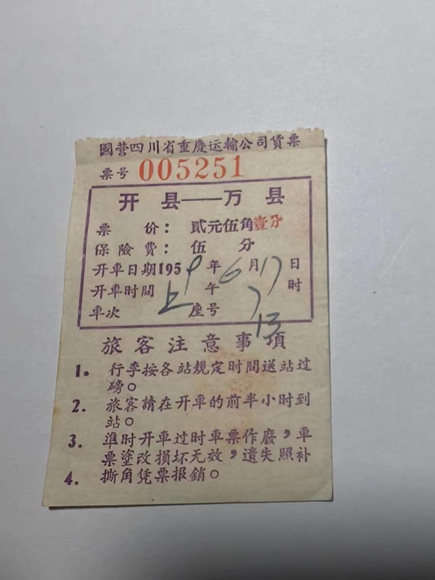 國营四川省重慶运输公司貨票
票号 005251
开县——万县
票 价：貳元伍角壹分
保險費：伍 分
开車日期1959年6月17日
开車时間 上 午 7 时
車次 座号 13
旅客注意事項
1。 行李按各站規定时間送站过
磅。
2。 旅客請在开車的前半小时到
站。
3。 準时开車过时車票作廢，車
票塗改損坏无效，遺失照补
4. 撕角凭票报銷。